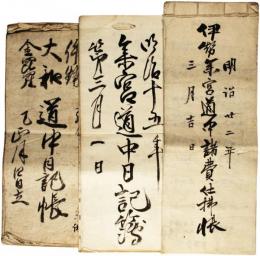 明治廿二年
伊勢参宮道中諸費仕拂帳
三月吉日
明治十五年
参宮道中日記簿
第二月一日
伊勢
大和道中日記帳
金毘羅
正月